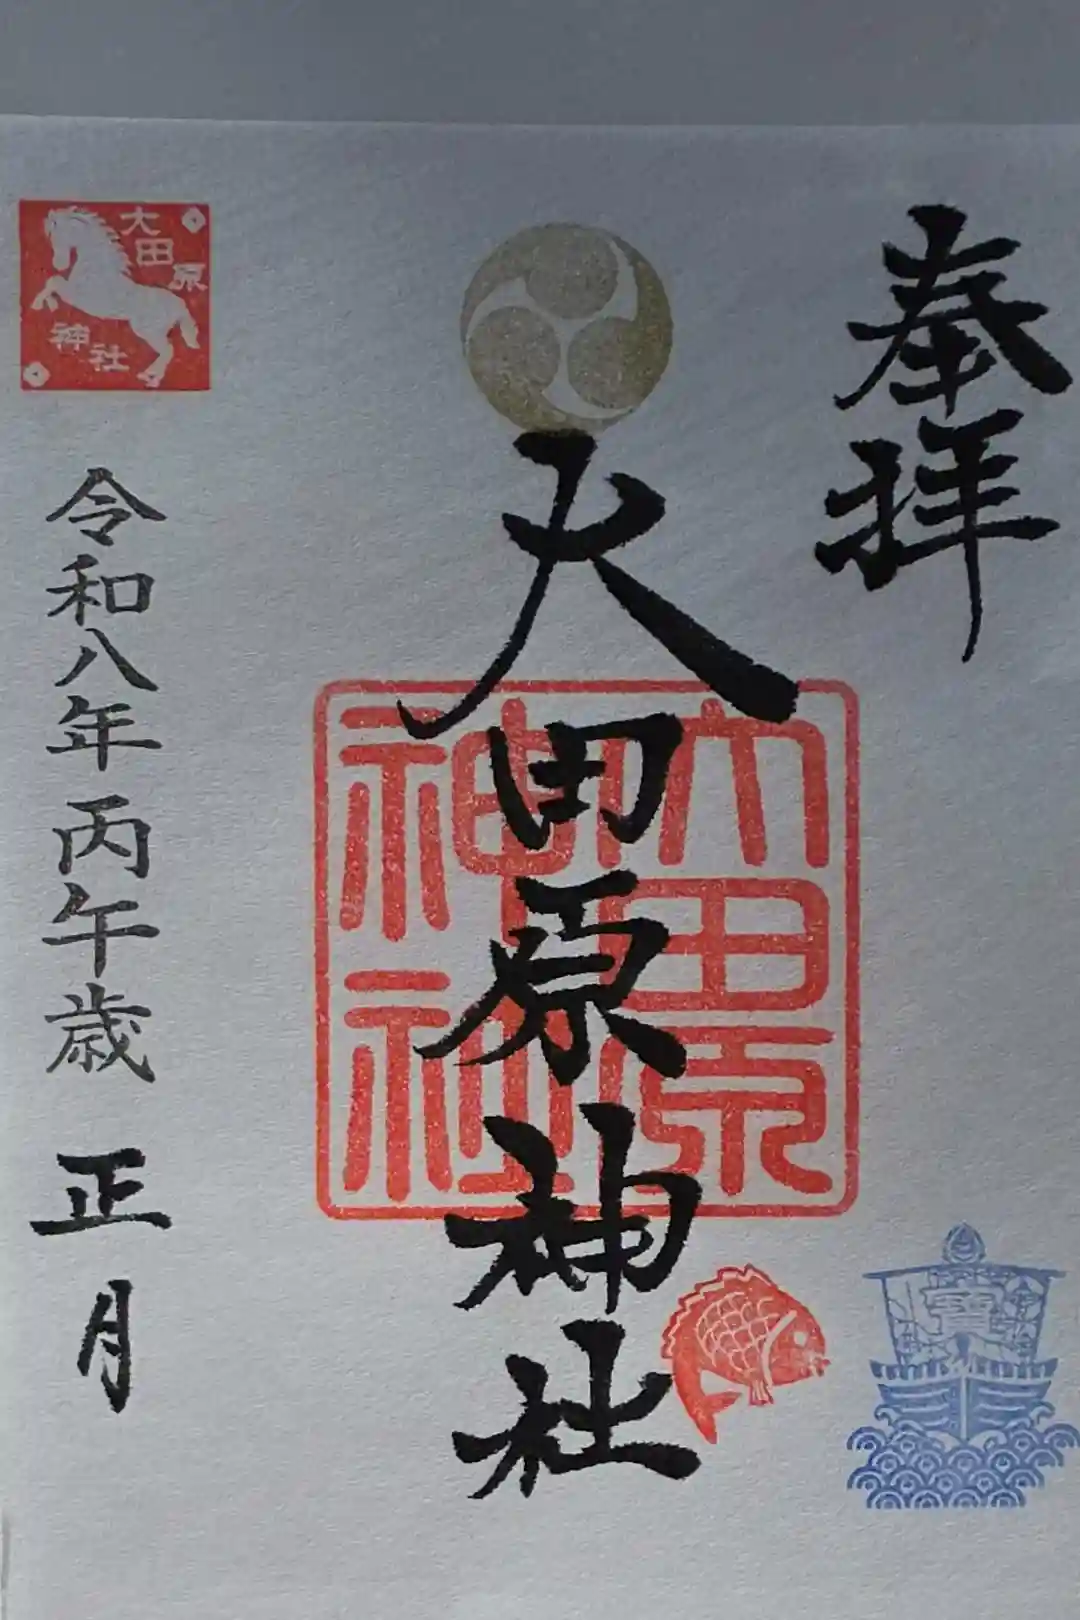 奉拝
大田原神社
大田原
神社
令和八年 丙午歳 正月
大田原
神社
寶